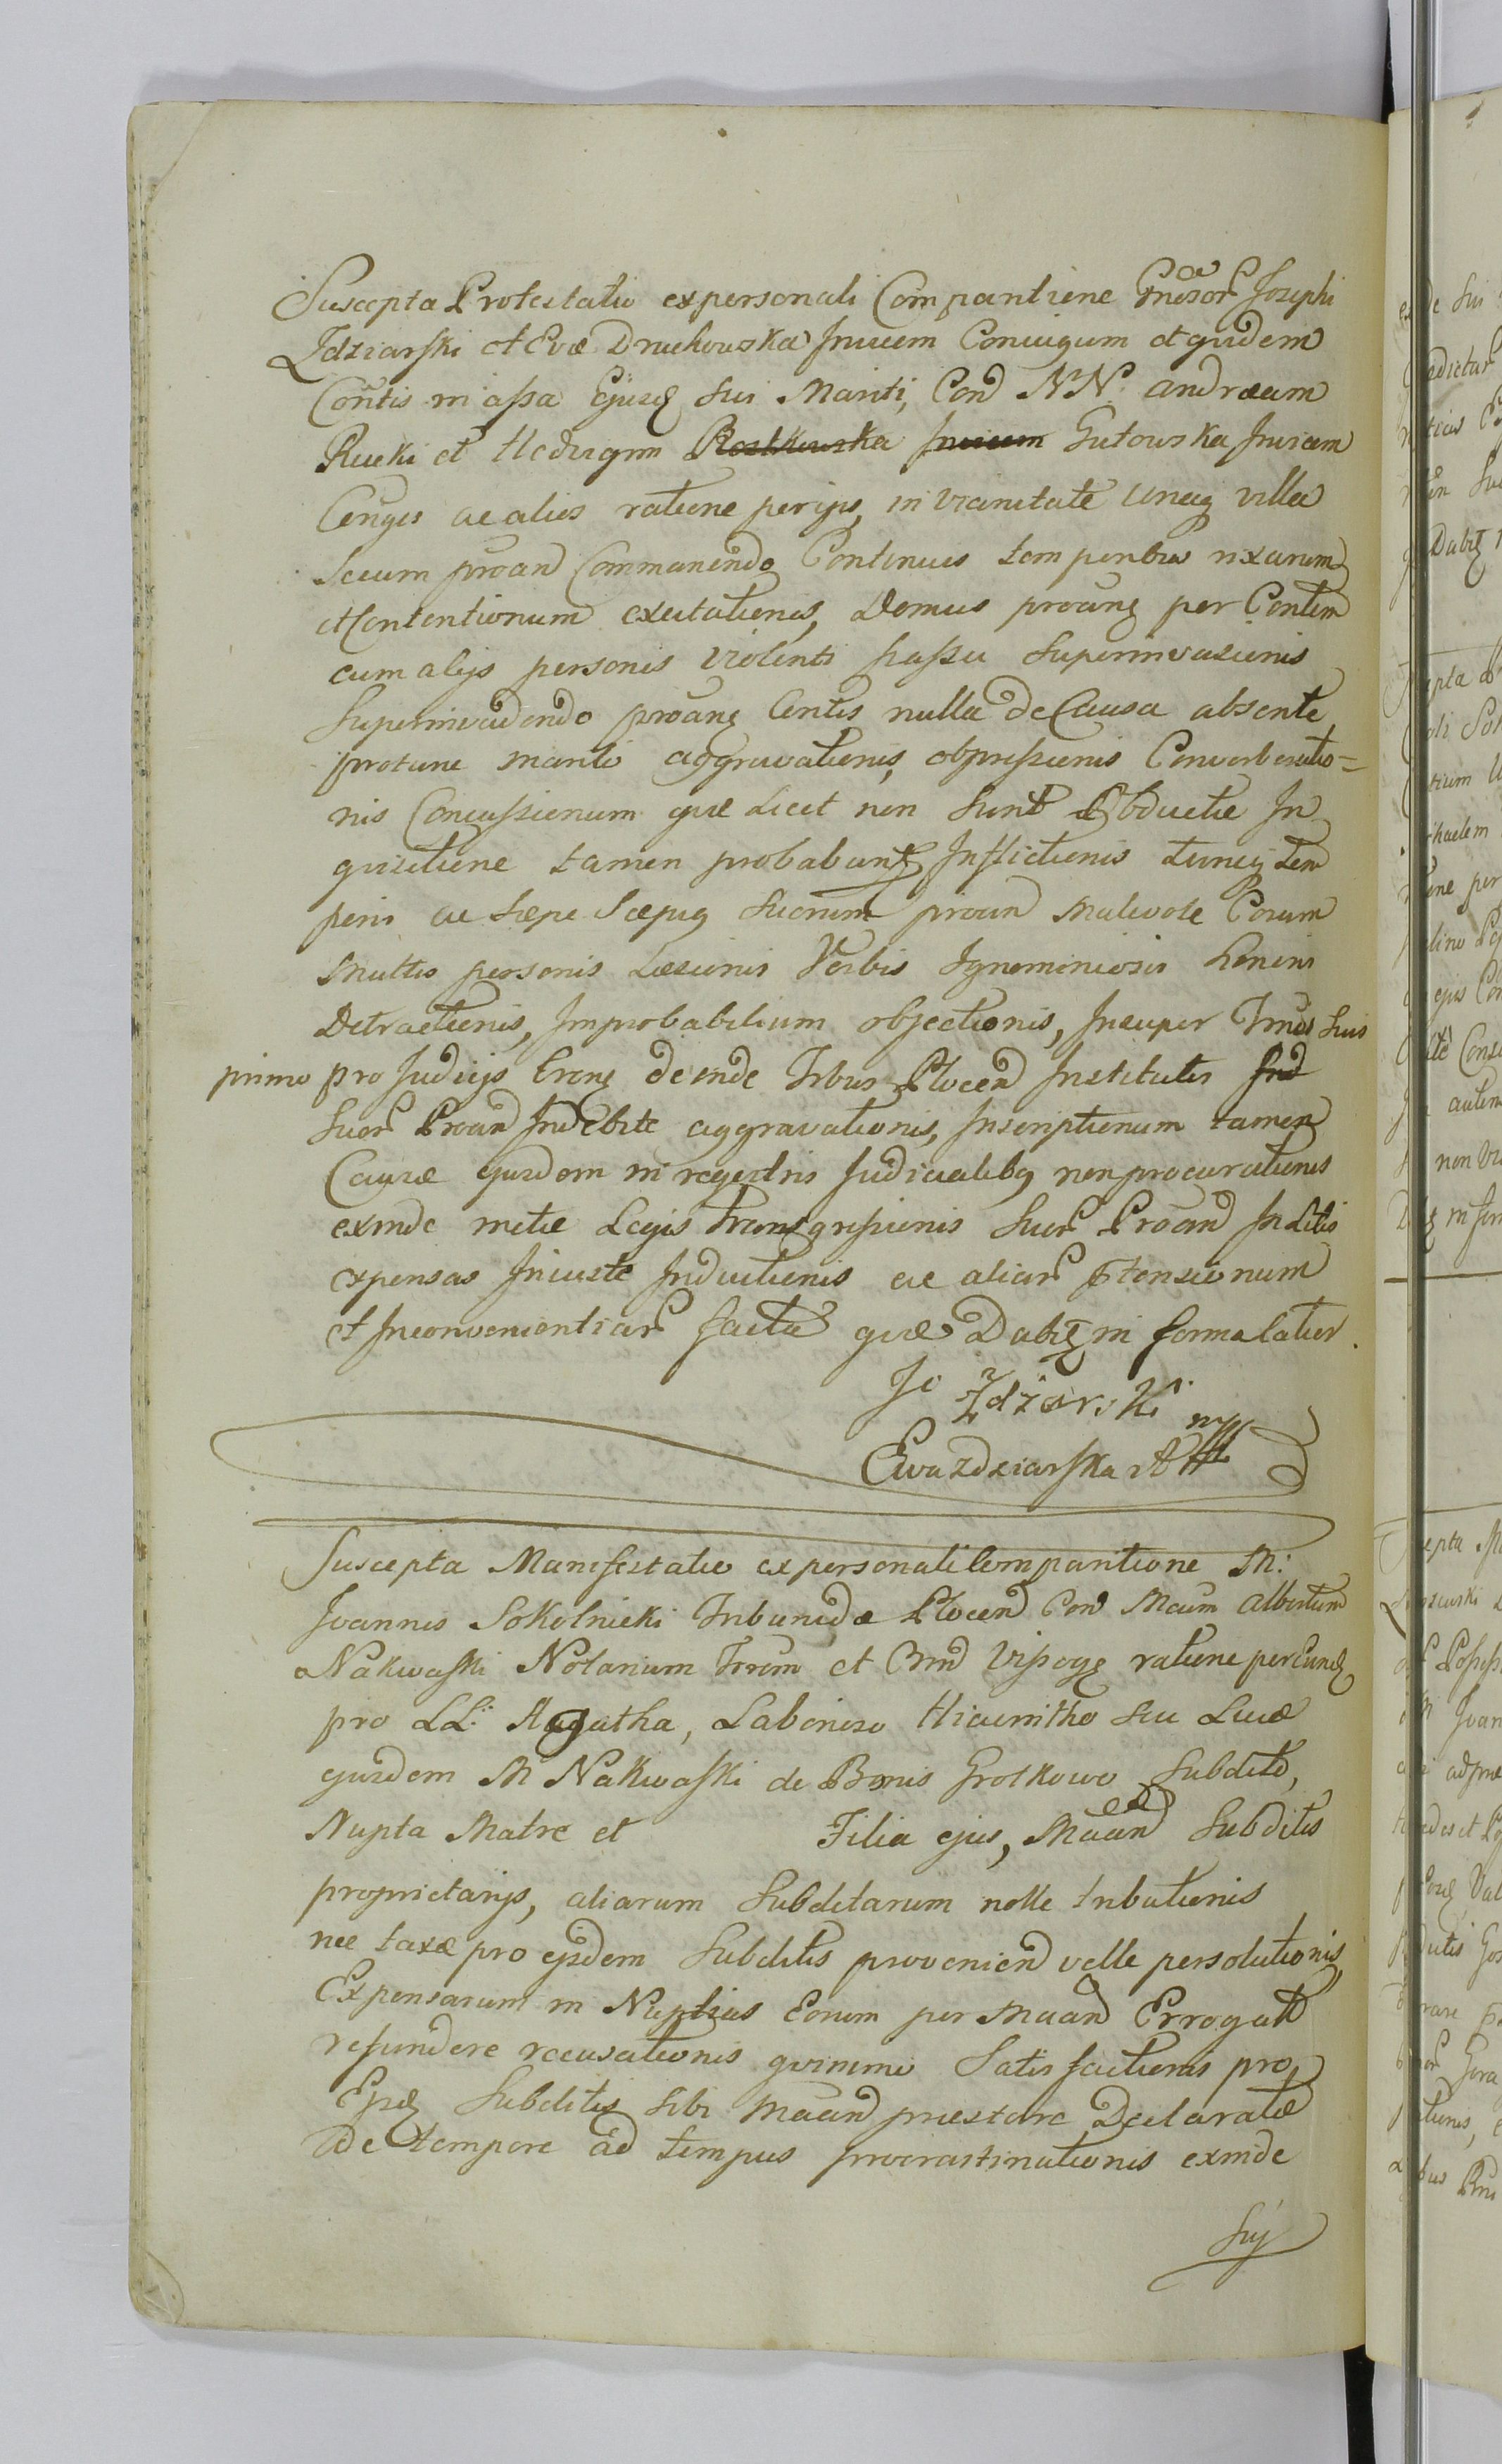 Suscepta Protestatio ex personali Comparitione Gnosor Josephi
Idziarski et Evæ Druchowska Invicem Conjugum et quidem
Contis in assa Ejusq sui Mariti, Con NN. andræam
Rucki et Hedvigim Rostkowska Invicem Gutowska Invicem
Conges ac alios ratione per ips, in vicinitate Uneq villæ
Secum proan Commanendo Continuis temporibus rixarum
et Contentionum excitationis, Domus proang per Contem
cum alijs personis violenti passu Superinvasionis
Superinvadendo proang Contis nulla de Causa absente
protunc marito aggravationis, obpressionis Converberatio=
nis Concussionum quæ Licet non Sunt Obductæ In
quisitione tamen probabunt Inflictionis tuncq tem
poris ac sæpe Sæpiq Suorum proan Malevole Coram
Multis personis Læsionis Verbis Ignominiosis honoris
Detractionis, Improbabilium objectionis, Insuper Tmos suis
primo pro Judicijs Crong deinde Trbus Plocen Institutis Ind
Suor Proan Indebite aggravationis, Inscriptionum tamen
Causæ ejusdem in regestris Judicialibq non procurationis
exinde metæ Legis transgressionis Suor Proan In Litis
expensas Iniuste Inductionis ac aliar Ptensionum
et Inconvenientiar facta quæ Dabit in forma latior.
Jo Idziarski mp
Ewa Zdziarska
Suscepta Manifestatio ex personali Comparitione M:
Joannis Sokolnicki Tribunidæ Plocen Con Mcum Albertum
Nakwaski Notarium Trrem et Vissoge ratione per Eund
pro LL: Magatha, Laborioso Hiacintho seu Luca
ejusdem M Nakwaski de Bonis Grotkowo Subdito,
Nupta Matre et Filia ejus, Maan Subditis
proprietarijs, aliarum Subditarum nolle tributionis
nec taxæ pro ejsdem Subditis provenien velle persolutionis,
Expensarum in Nuptias Eorum per Maan Errogat
refundere recusationis quinimo Satisfactionis pro
Ejsd Subditis sibi Maan præstare Declaratæ
de tempore ad tempus procrastinationis exinde
Sui